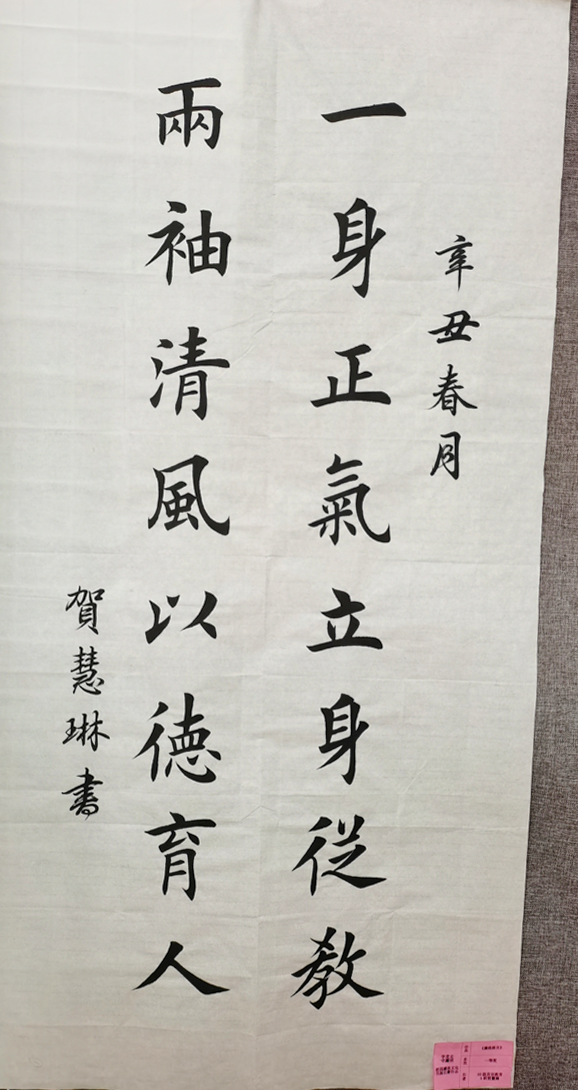 辛丑春月
一身正氣立身從教
兩袖清風以德育人
賀慧琳書